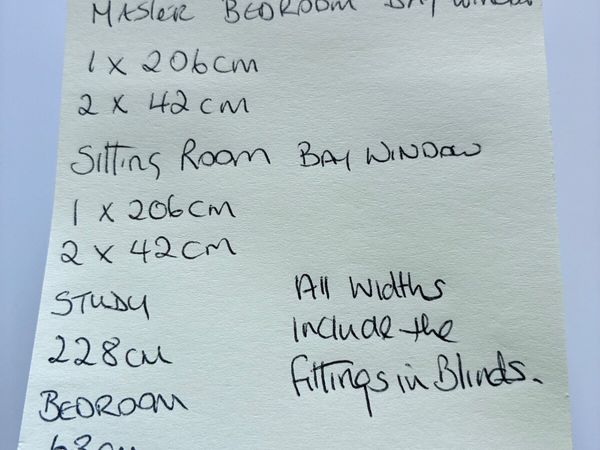 MASTER BEDROOM BAY WINDOW
1 x 206cm
2 x 42cm
Sitting Room BAY WINDOW
1 x 206cm
2 x 42cm
STUDY
228cm
BEDROOM
All Widths
include the
fittings in Blinds.